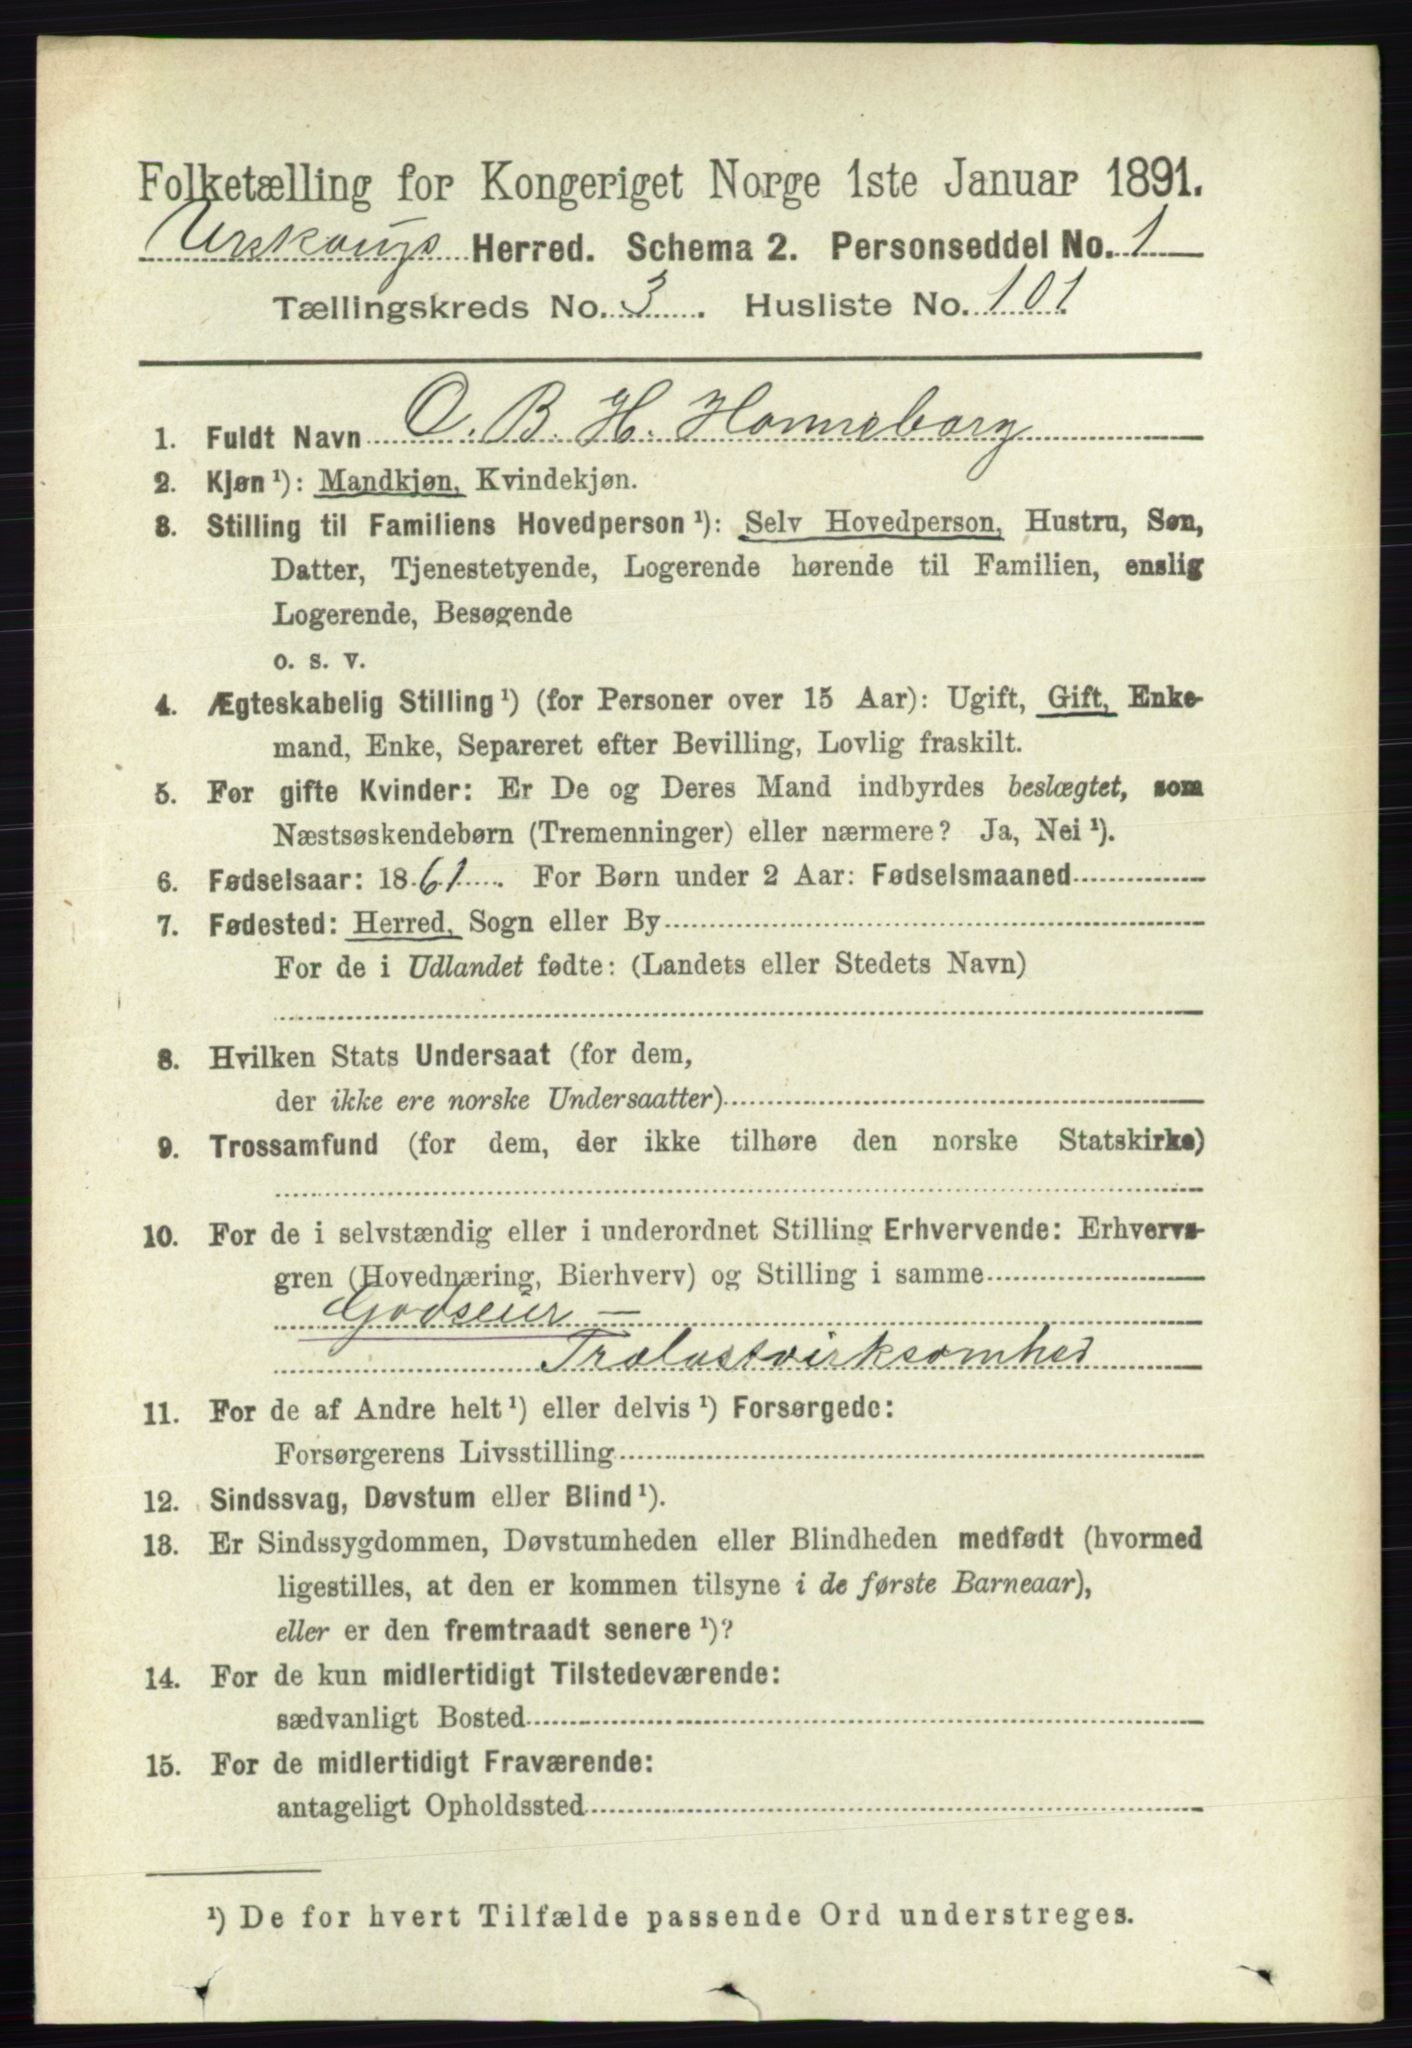 Folketælling for Kongeriget Norge 1ste Januar 1891.
Urskougs Herred. Schema 2. Personseddel No. 1
Tællingskreds No. 3. Husliste No. 101.
1. Fuldt Navn O. B. H. Honneborg
2. Kjøn ¹): Mandkjøn, Kvindekjøn.
3. Stilling til Familiens Hovedperson ¹): Selv Hovedperson, Hustru, Søn,
Datter, Tjenestetyende, Logerende hørende til Familien, enslig
Logerende, Besøgende
o. s. v.
4. Ægteskabelig Stilling ¹) (for Personer over 15 Aar): Ugift, Gift, Enke-
mand, Enke, Separeret efter Bevilling, Lovlig fraskilt.
5. For gifte Kvinder: Er De og Deres Mand indbyrdes beslægtet, som
Næstsøskendebørn (Tremenninger) eller nærmere? Ja, Nei ¹).
6. Fødselsaar: 1861. For Børn under 2 Aar: Fødselsmaaned
7. Fødested: Herred, Sogn eller By
For de i Udlandet fødte: (Landets eller Stedets Navn)
8. Hvilken Stats Undersaat (for dem,
der ikke ere norske Undersaatter)
9. Trossamfund (for dem, der ikke tilhøre den norske Statskirke)
10. For de i selvstændig eller i underordnet Stilling Erhvervende: Erhvervs-
gren (Hovednæring, Bierhverv) og Stilling i samme
Godseier –
Trælastvirksomhed
11. For de af Andre helt ¹) eller delvis ¹) Forsørgede:
Forsørgerens Livsstilling
12. Sindssvag, Døvstum eller Blind ¹).
13. Er Sindssygdommen, Døvstumheden eller Blindheden medfødt (hvormed
ligestilles, at den er kommen tilsyne i de første Barneaar),
eller er den fremtraadt senere ¹)?
14. For de kun midlertidigt Tilstedeværende:
sædvanligt Bosted
15. For de midlertidigt Fraværende:
antageligt Opholdssted
¹) De for hvert Tilfælde passende Ord understreges.